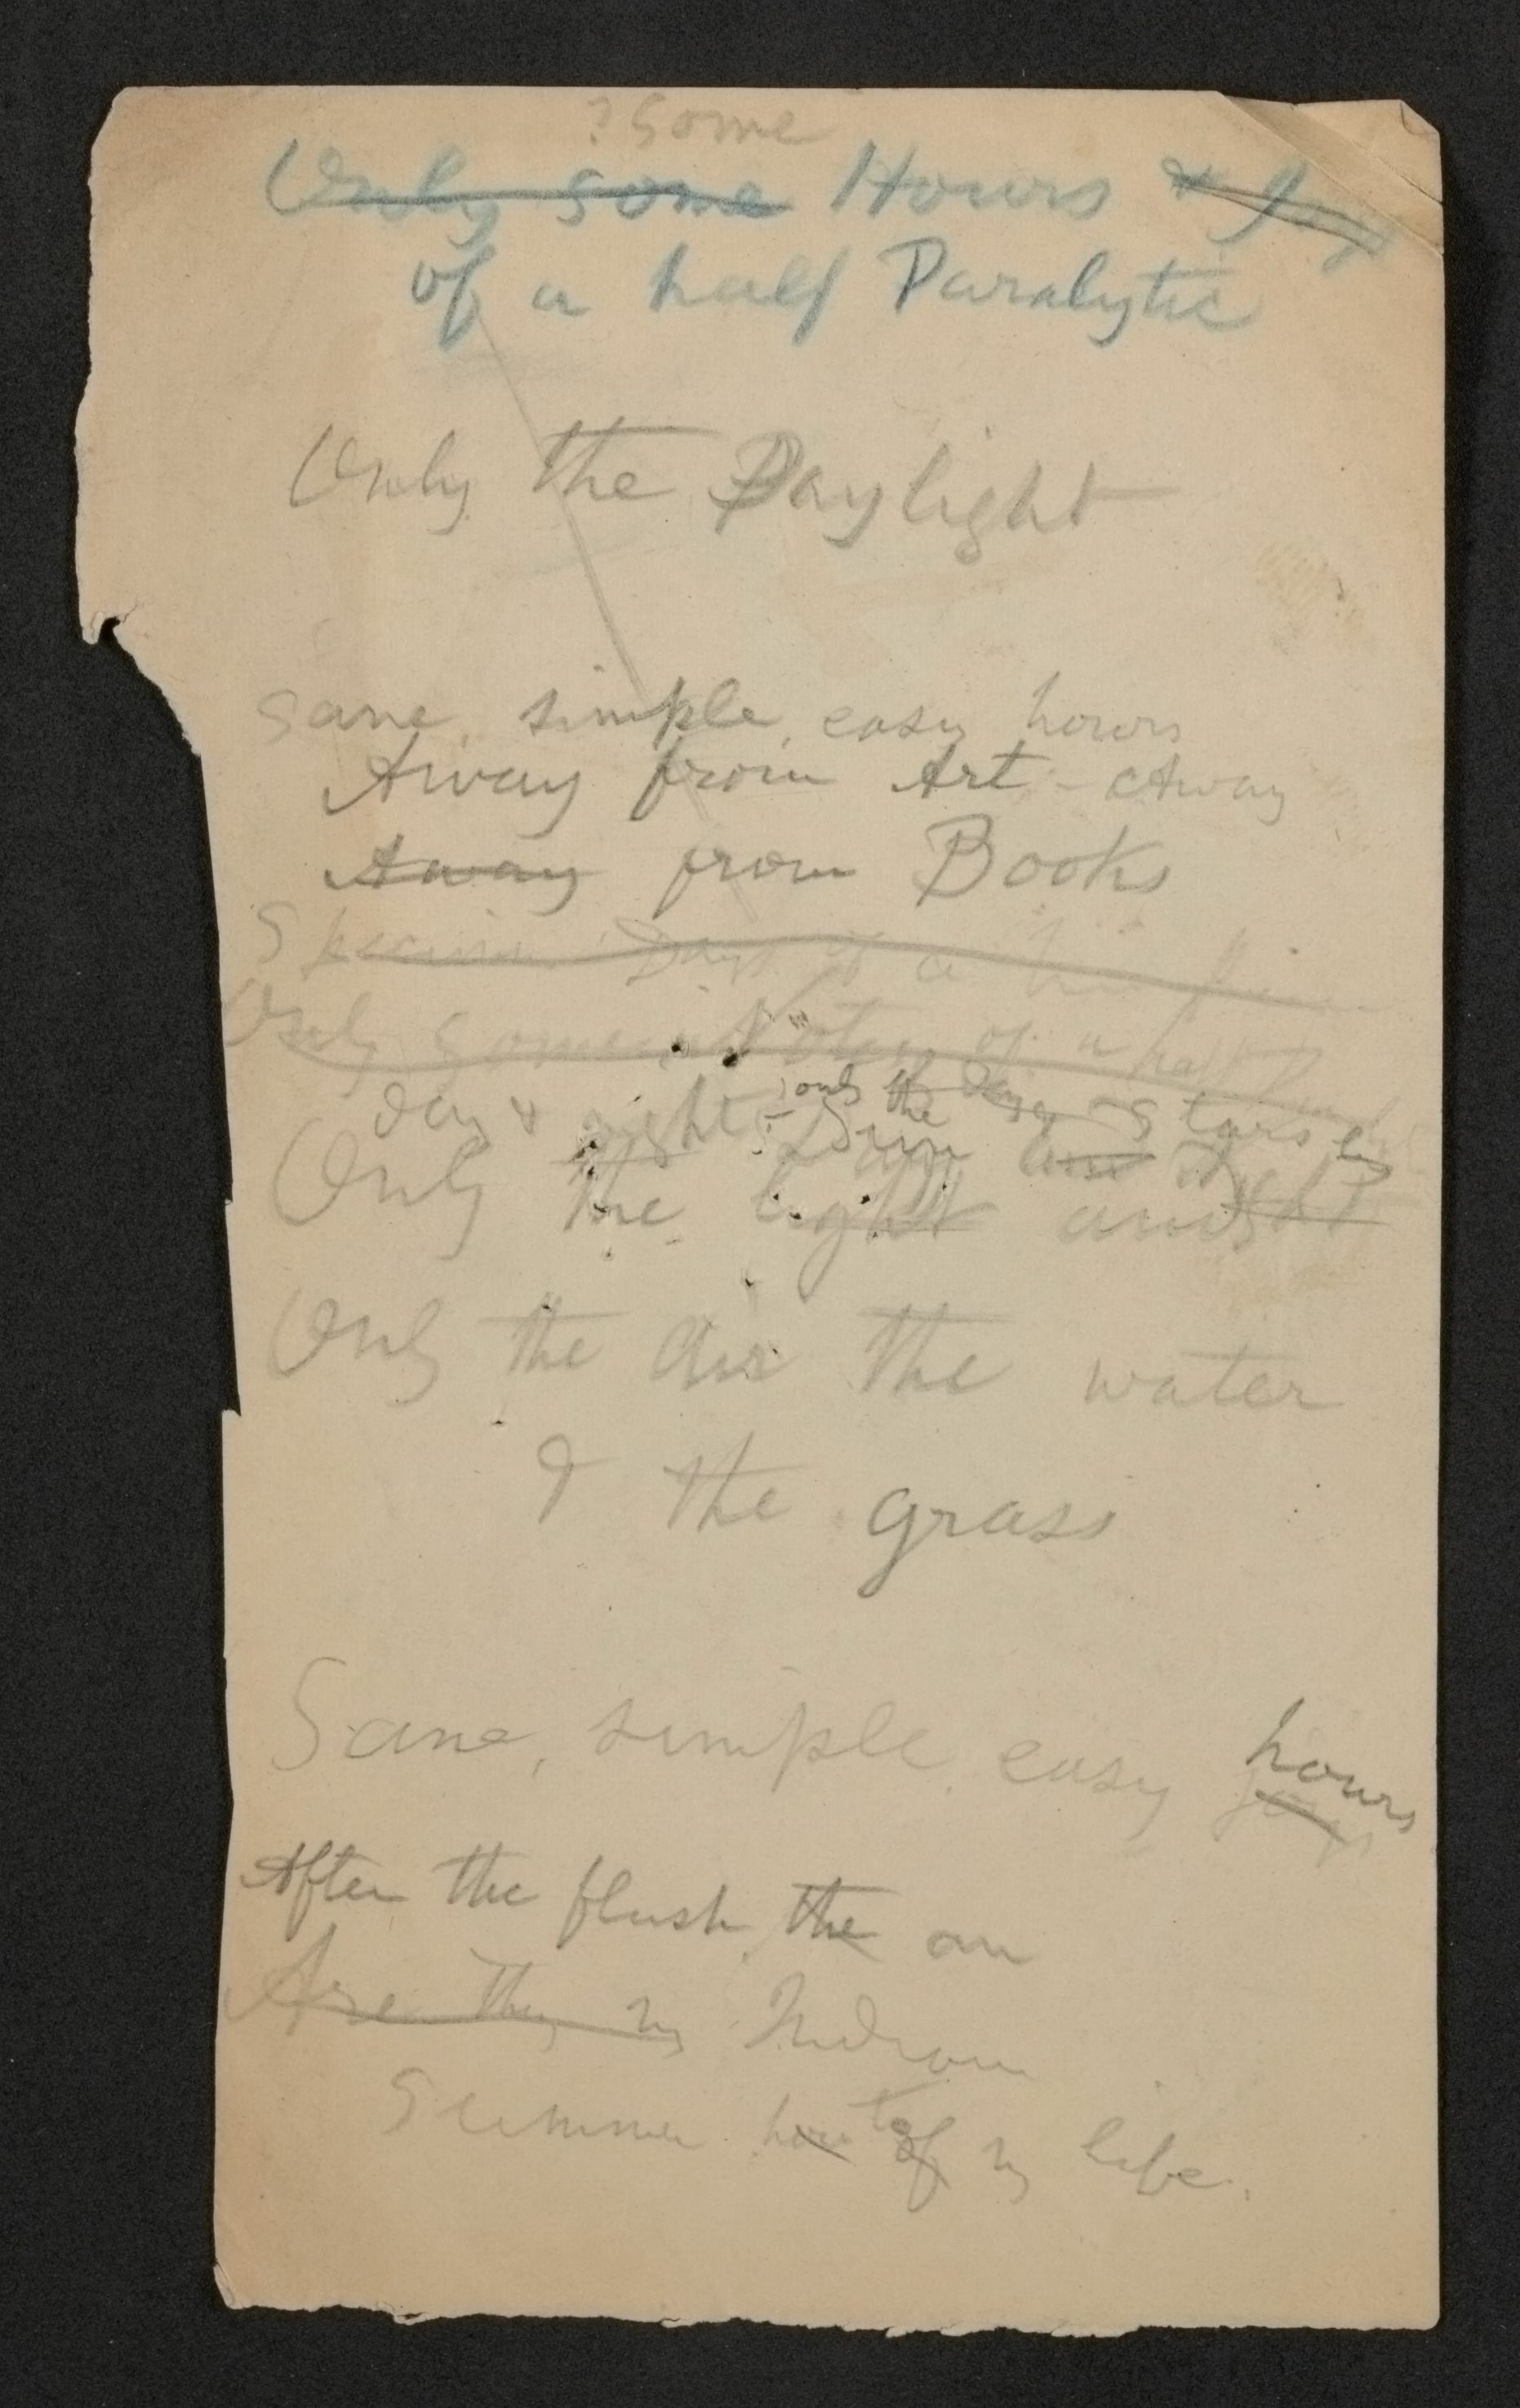 ? Some
Only some Hours &
of a half Paralytic
Only the Daylight
Sane, simple, easy hours
Away from Art – Away
Away from Books
Specimen Days of a
Only some Notes of a half
only the Stars
day & night Sun
Only the light and
Only the air the water
& the grass
Sane, simple, easy hours
joys
After the flush, the an
Are they my Indian
Summer of my life.